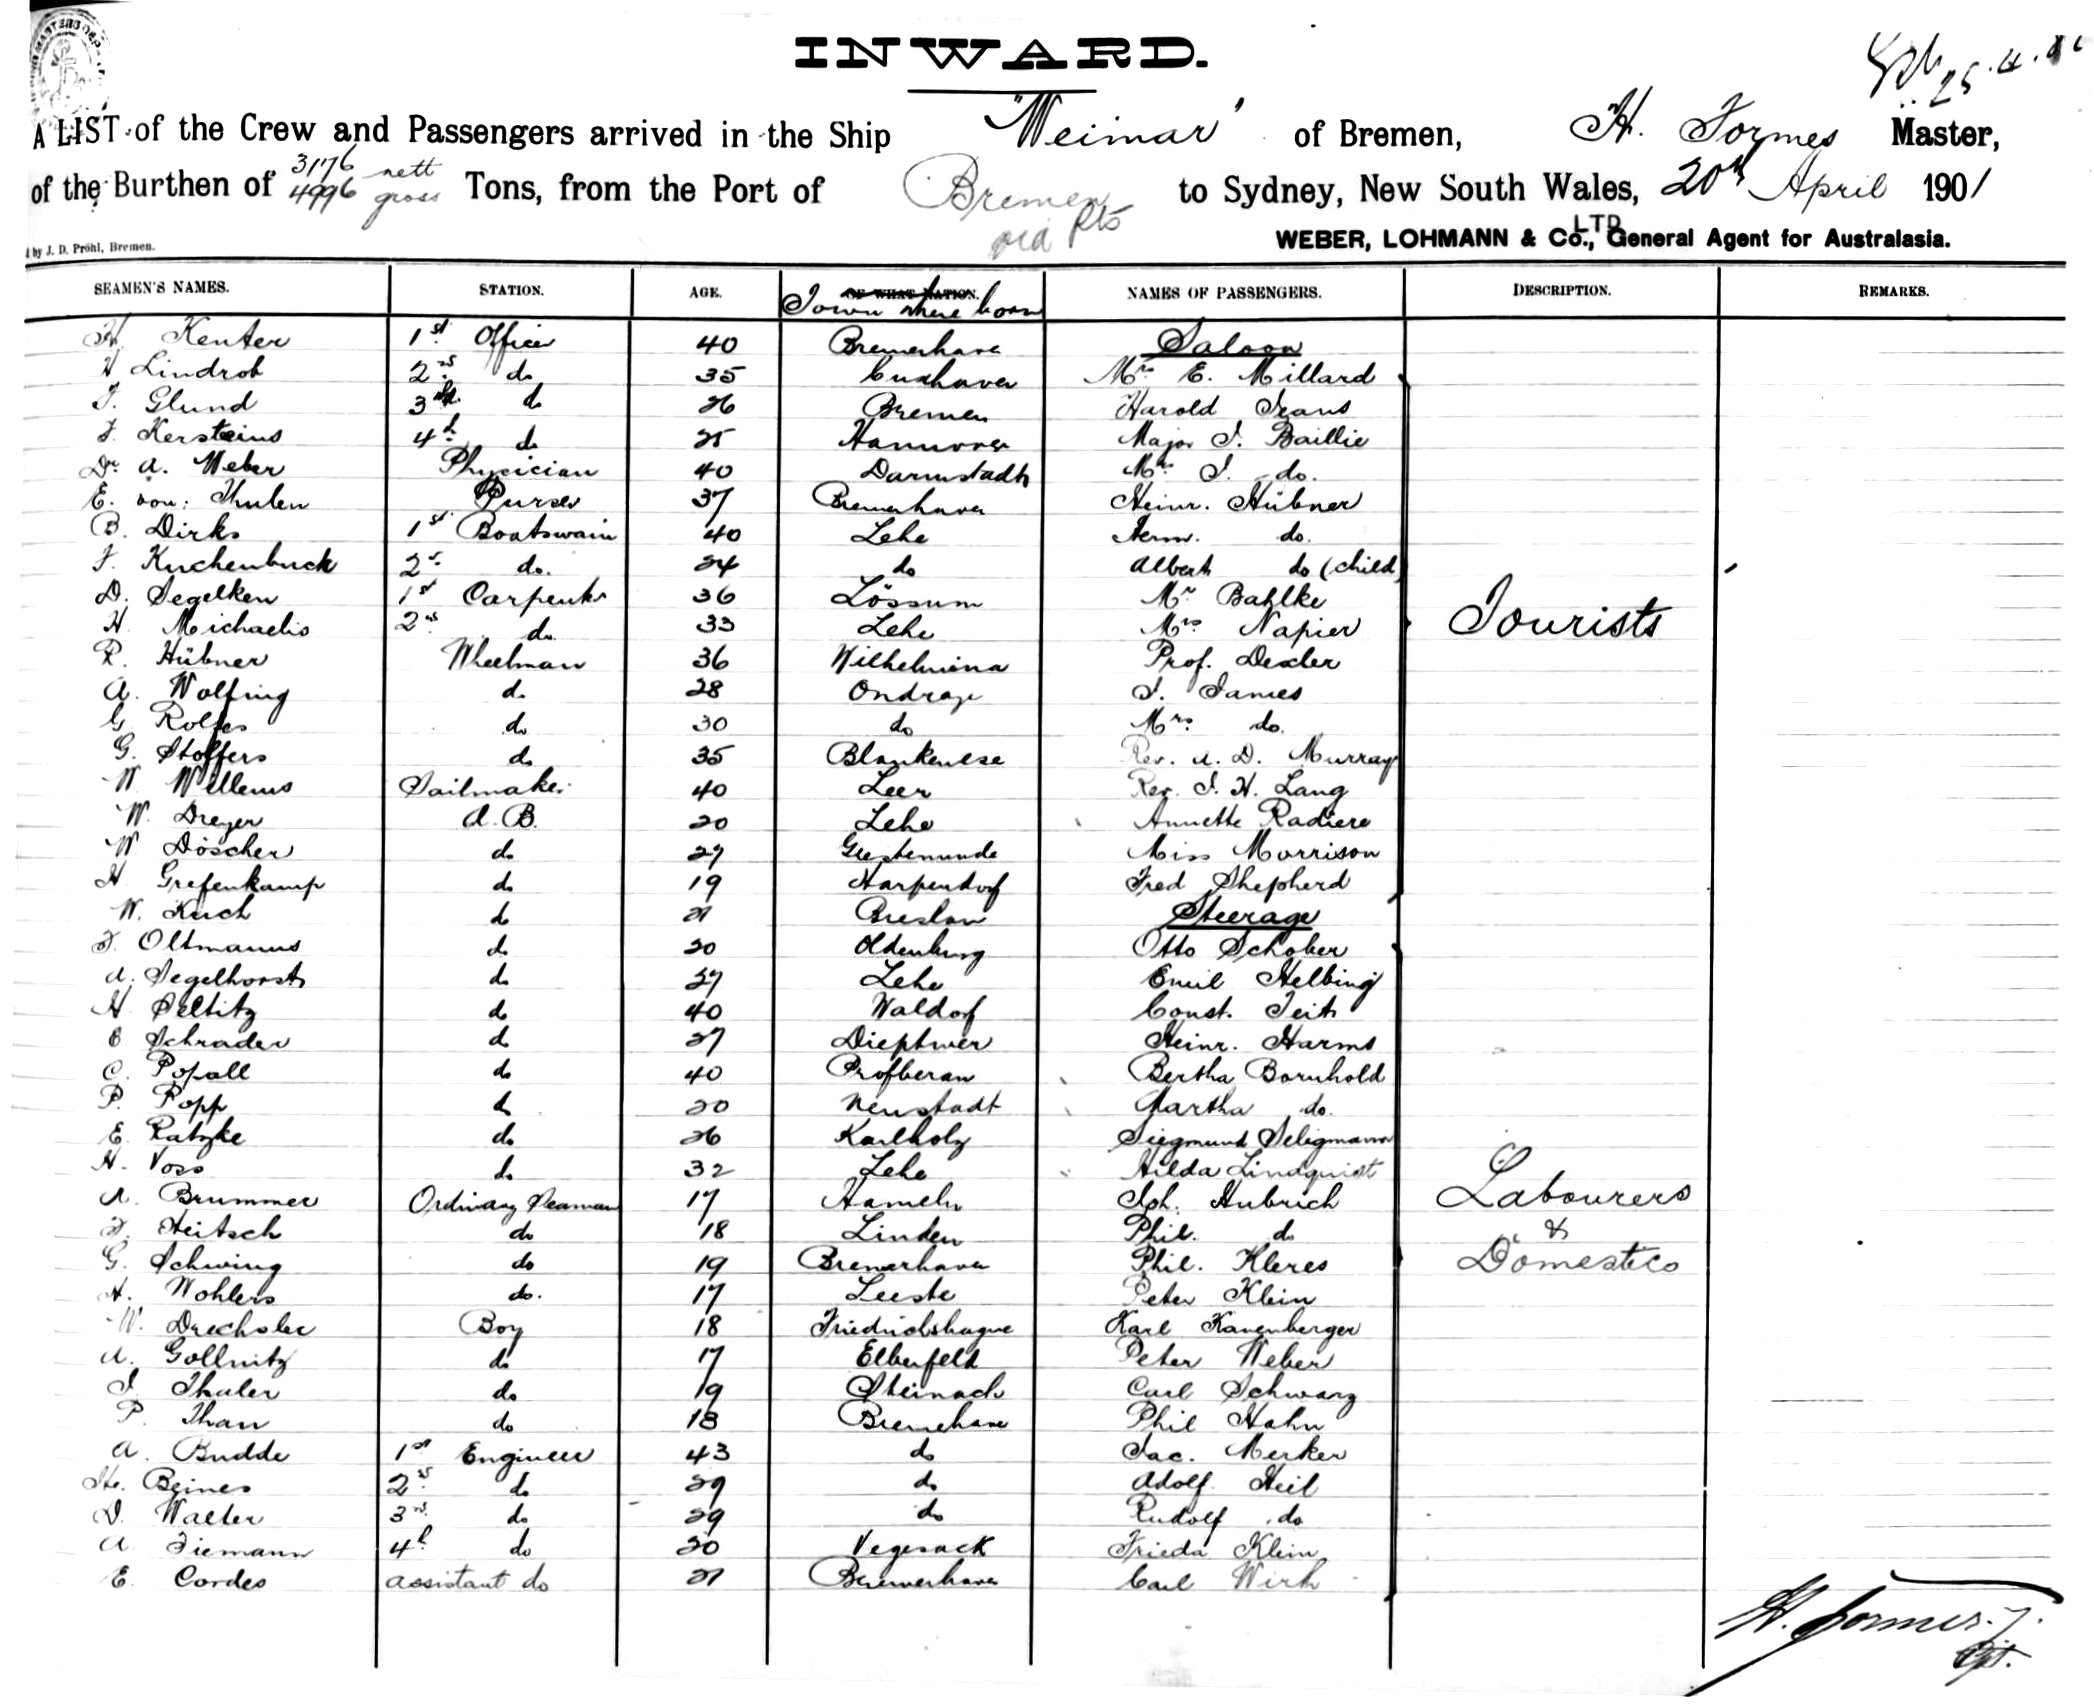 INWARD.
25.4.
A LIST of the Crew and Passengers arrived in the Ship "Weimar" of Bremen, H. Formes Master,
of the Burthen of 3176 nett 4996 gross Tons, from the Port of Bremen via Pts to Sydney, New South Wales, 20th April 1901
WEBER, LOHMANN & Co., LTD General Agent for Australasia.
by J. D. Pröhl, Bremen.
SEAMEN'S NAMES. STATION. AGE. OF WHAT NATION. Town where born NAMES OF PASSENGERS. DESCRIPTION. REMARKS.
H. Kenter 1st Officer 40 Bremerhave Saloon
H Lindrob 2nd do 35 Cuxhaven Mrs E. Millard
F. Glund 3rd do 26 Bremen Harold Jeans
F. Kersteins 4th do 25 Hannover Major J. Baillie
Dr. A. Weber Physician 40 Darmstadt Mrs J. do.
E. von: Thulen Purser 37 Bremerhaven Heinr. Hübner
B. Dirks 1st Boatswain 40 Lehe Herm. do.
F. Kuchenbuck 2nd do. 24 do Albert do (child)
D. Segelken 1st Carpenter 36 Lössum Mr Bahlke
H. Michaelis 2nd do. 33 Lehe Mrs Napier Tourists
R. Hübner Wheelman 36 Wilhelmina Prof. Dexler
A. Wolfing do 28 Ondrage J. James
G Rolfes do 30 do Mrs do.
G. Stoffers do 35 Blankenese Rev. A. D. Murray
W Willems Sailmaker 40 Leer Rev. J. H. Lang
W. Dreyer A. B. 20 Lehe Annette Radiere
W Döscher do 27 Geestemunde Miss Morrison
H Grefenkamp do 19 Harpendorf Fred Shepherd
W. Kuch do 21 Breslau Steerage
F. Oltmanns do 20 Oldenburg Otto Schober
A. Segelhorst do 27 Lehe Emil Helbing
H Seltitz do 40 Waldorf Const. Teit
C Schrader do 27 Diepwer Heinr. Harms
C. Popall do 40 Profberan Bertha Bornhold
P. Popp do 20 Neustadt Martha do.
E. Ratzke do 26 Karlholz Siegmund Seligmann
H. Voss do 32 Lehe Hilda Lindquist
A. Brummer Ordinary Seaman 17 Hameln Joh. Hubrich Labourers
F. Heitsch do 18 Linden Phil. do &
G. Schwing do 19 Bremerhaven Phil. Kleres Domestics
H. Wohlers do. 17 Leeste Peter Klein
W. Drechsler Boy 18 Friedrichshagne Karl Kanenberger
A. Gollnitz do 17 Elberfeld Peter Weber
J. Thaler do 19 Steinach Carl Schwarz
P. Than do 18 Bremehave Phil Hahn
A. Budde 1st Engineer 43 do Jac. Merker
He. Beines 2nd do 29 do Adolf Heil
D. Walter 3rd do 29 do Rudolf do
A. Tiemann 4th do 20 Vegesack Frieda Klein
E. Cordes assistant do 21 Bremerhaven Carl Wirth
H. Formes
Cpt.